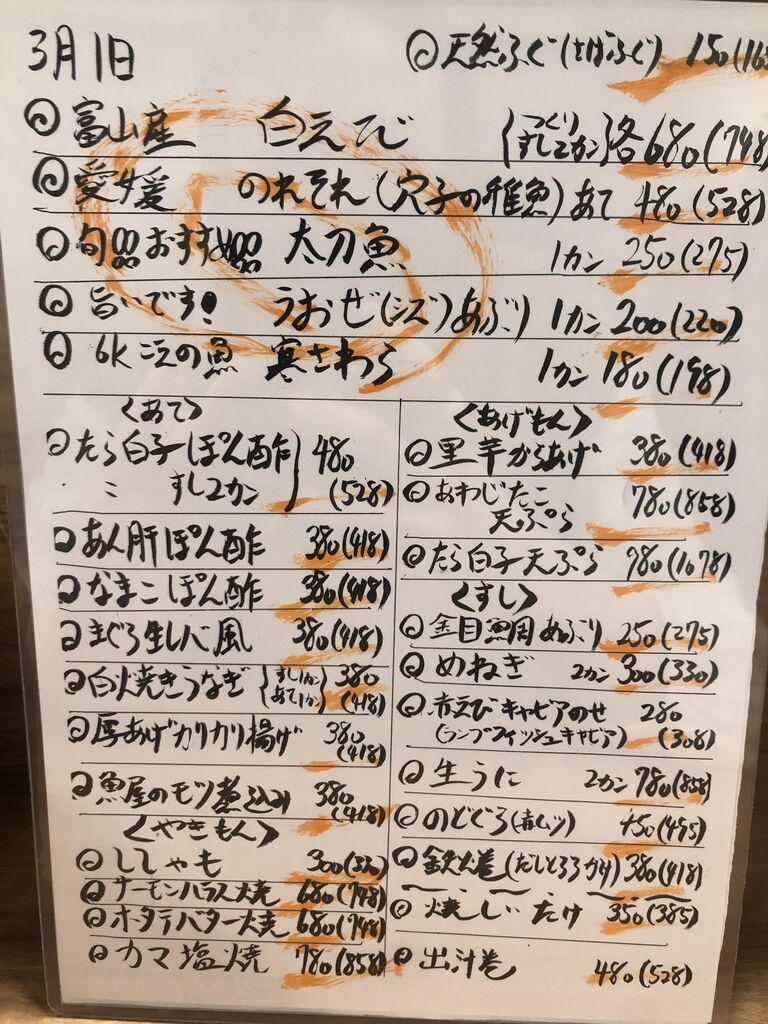 3月1日
◎天然ふぐ(さばふぐ) 150(165
◎富山産 白えび {つくり すし2カン}各680(748
◎愛媛 のれそれ(穴子の稚魚)あて 480(528)
◎旬品おすすめ品 太刀魚 1カン 250(275)
◎旨いです! うおぜ(シズ)あぶり 1カン 200(220)
◎6kごえの魚 寒さわら 1カン 180(198)
<あて>
◎たら白子ぽん酢 480
〃 すし2カン (528)
◎あん肝ぽん酢 380(418)
◎なまこぽん酢 380(418)
◎まぐろ生レバ風 380(418)
◎白焼きうなぎ{すし1カン あて1カン} 380(418)
◎厚あげカリカリ揚げ 380(418)
◎魚屋のモツ煮込み 380(418)
<やきもん>
◎ししゃも 300(330)
◎サーモンハラス焼 680(748)
◎ホタテバター焼 680(748)
◎カマ塩焼 780(858)
<あげもん>
◎里芋からあげ 380(418)
◎あわじたこ 780(858)
天ぷら
◎たら白子天ぷら 980(1078)
<すし>
◎金目鯛あぶり 250(275)
◎めねぎ 2カン 300(330)
◎赤えびキャビアのせ 280
(ランプフィッシュキャビア) (308)
◎生うに 2カン 780(858)
◎のどぐろ(赤ムツ) 450(495)
◎鉄火巻(だしとろろかけ) 380(418)
◎焼しいたけ 350(385)
◎出汁巻 480(528)